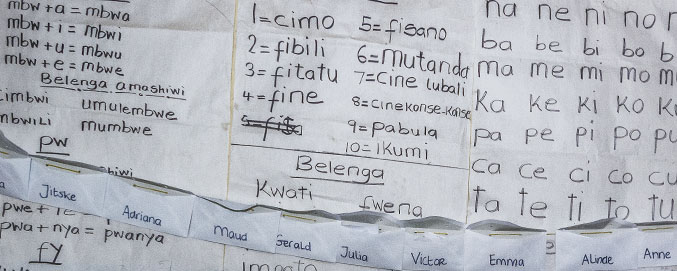 mbw + a = mbwa
mbw + i = mbwi
mbw + u = mbwu
mbw + e = mbwe
Belenga amashiwi
cimbwi umulembwe
mbwili mumbwe
pw
shiwi
pwe +
pwa + nya = pwanya
fy
1=cimo
2=fibili
3=fitatu
4=fine
5=fisano
6=mutanda
7=cine lubali
8=cinekonse-konse
9=pabula
10=ikumi
Belenga
Kwati fwena
na ne ni no
ba be bi bo b
ma me mi mo m
Ka Ke Ki Ko K
pa pe pi po pu
ca ce ci co cu
ta te ti to tu
Jitske
Adriana
Maud
Gerald
Julia
Victor
Emma
Alinde
Anne